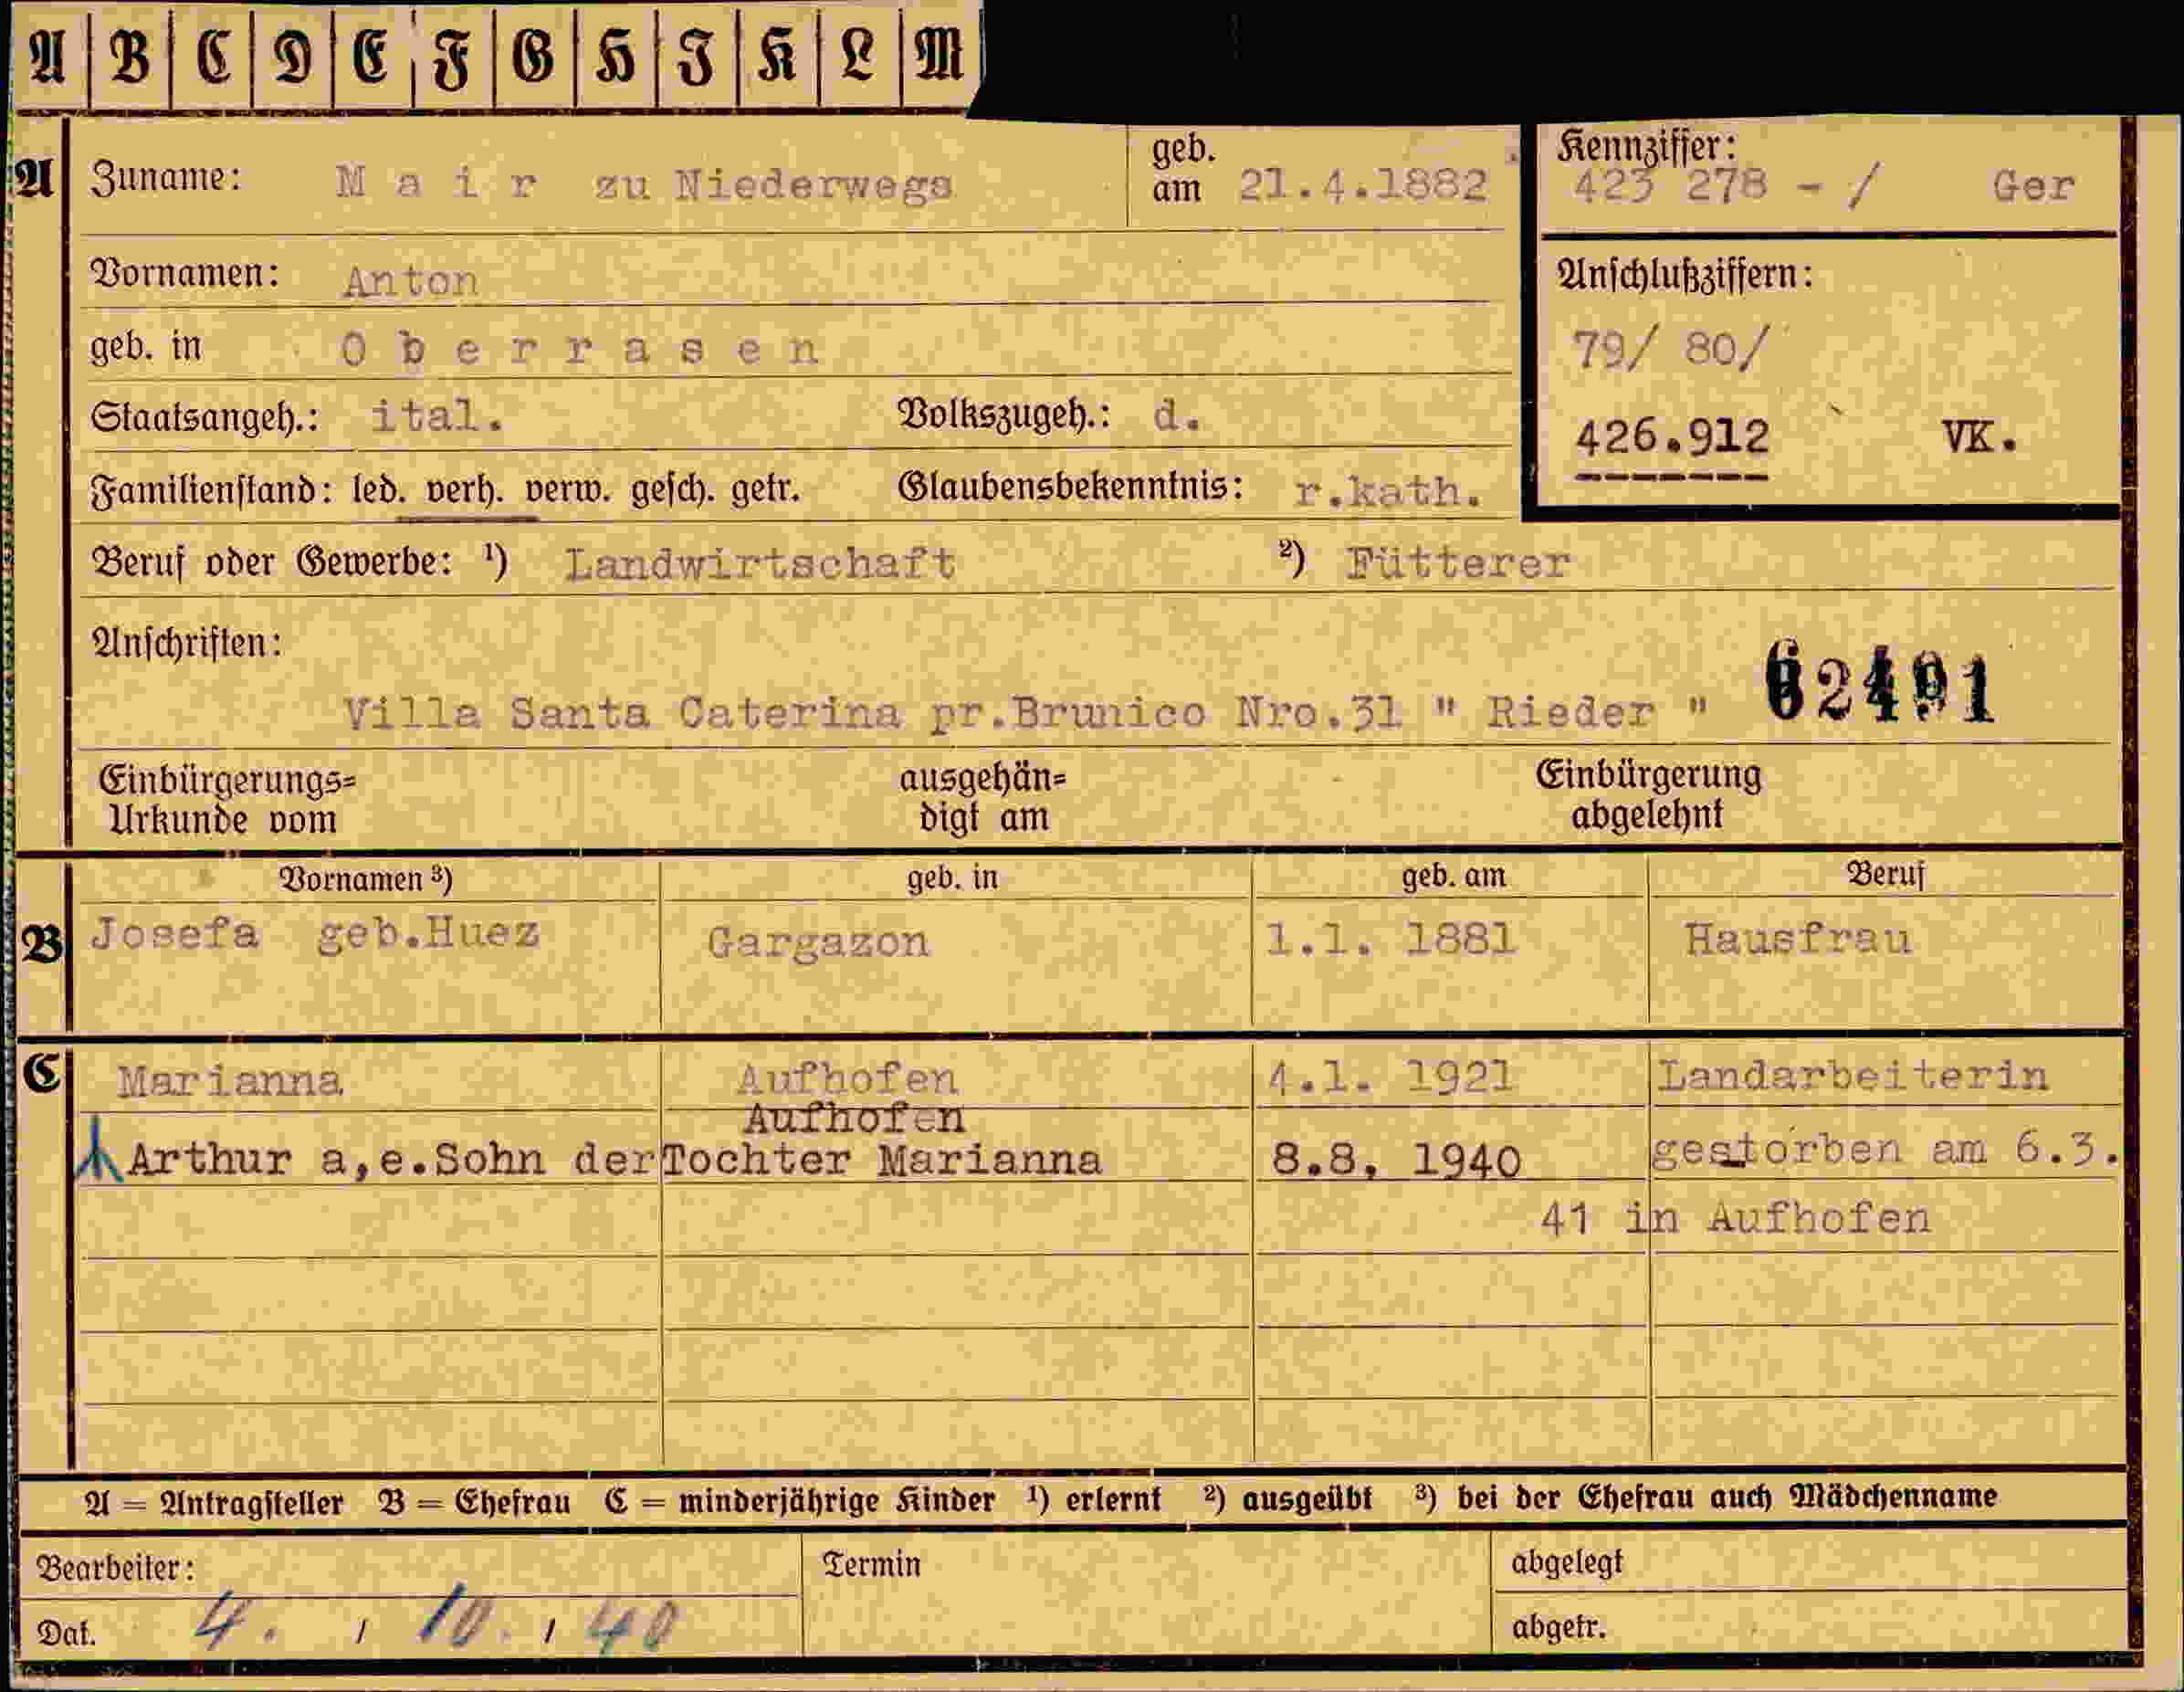 A B C D E F G H I K L M
A Zuname: M a i r zu Niederwegs geb. am 21.4.1882 Kennziffer: 423 278 - / Ger
Vornamen: Anton Anschlußziffern:
geb. in O b e r r a s e n 79/ 80/
Staatsangeh.: ital. Volkszugeh.: d. 426.912 VK.
Familienstand: led. verh. verw. gesch. getr. Glaubensbekenntnis: r.kath.
Beruf oder Gewerbe: ¹) Landwirtschaft ²) Fütterer
Anschriften:
Villa Santa Caterina pr.Brunico Nro.31 " Rieder "
Einbürgerungs= ausgehän= Einbürgerung
Urkunde vom digt am abgelehnt
Vornamen ³) geb. in geb. am Beruf
B Josefa geb.Huez Gargazon 1.1. 1881 Hausfrau
C Marianna Aufhofen 4.1. 1921 Landarbeiterin
Aufhofen
Arthur a,e.Sohn der Tochter Marianna 8.8. 1940 gestorben am 6.3.
41 in Aufhofen
A = Antragsteller B = Ehefrau C = minderjährige Kinder ¹) erlernt ²) ausgeübt ³) bei der Ehefrau auch Mädchenname
Bearbeiter: Termin abgelegt
Dat. 4. / 10. / 40 abgetr.